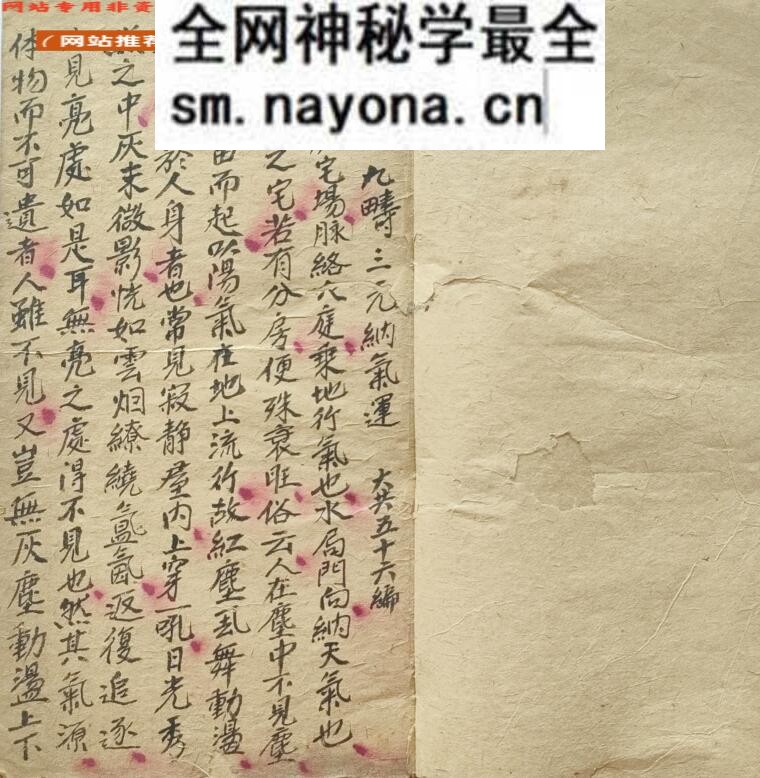 网站专用非资
网站推荐
全网神秘学最全
sm.nayona.cn
九疇三元納氣運 大共五十六編
宅場脉絡穴庭乘地行氣也水局門向納天氣也
之宅若有分房便殊衰旺俗云人在塵中不見塵
而起以陽氣在地上流行故紅塵乱舞動盪
於人身者也常見寂静屋内上穿一吼日光秀
之中灰末微影恍如雲烟繚繞氳氤返復追逐
見亮處如是耳無亮之處得不見也然其氣源
体物而不可遺者人雖不見又豈無灰塵動盪上下